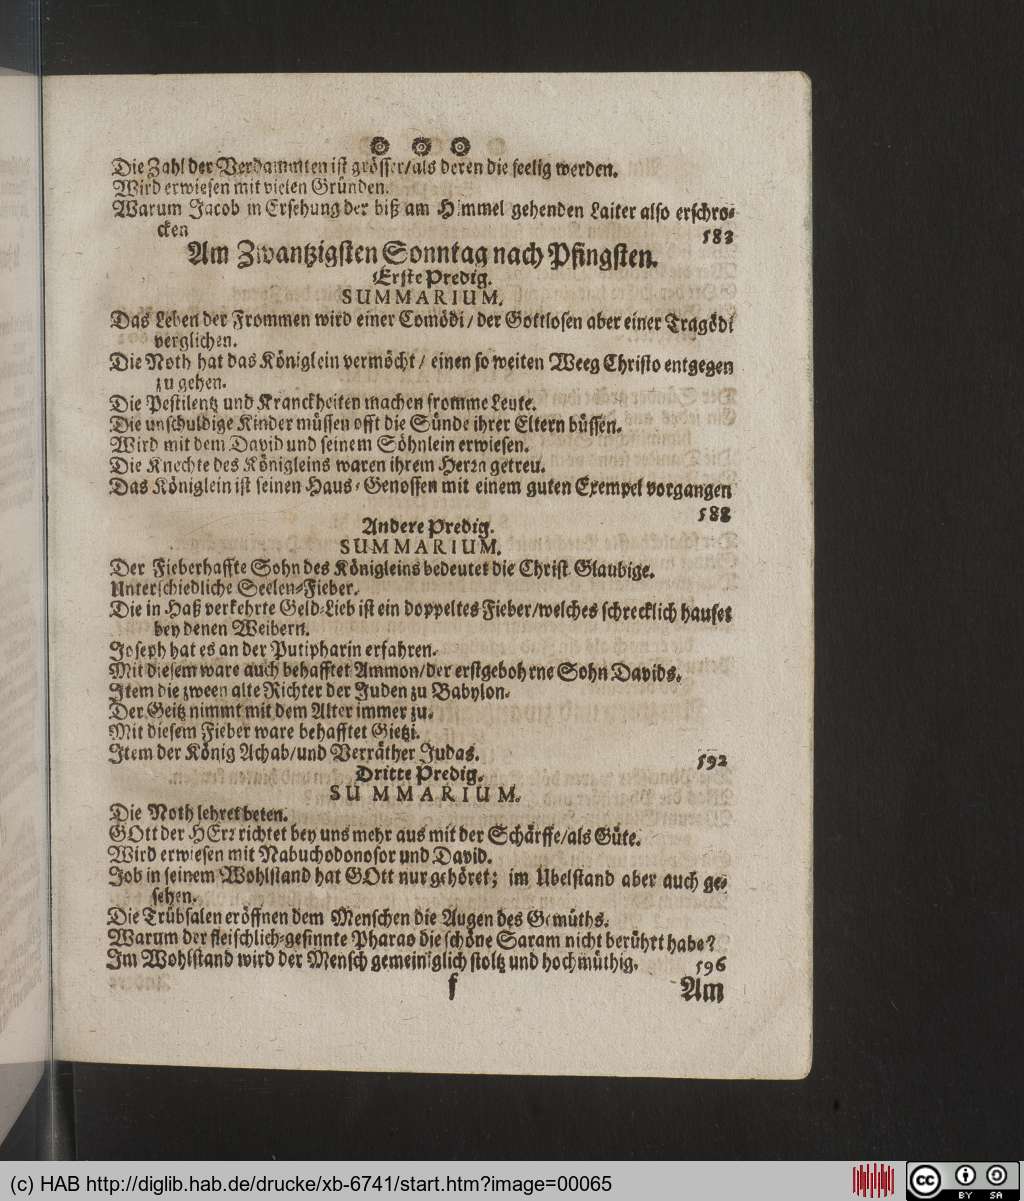 Die Zahl der Verdammten ist grösser/als deren die seelig werden.
Wird erwiesen mit vielen Gründen.
Warum Jacob in Ersehung der biß am Himmel gehenden Laiter also erschro-
cken 183
Am Zwantzigsten Sonntag nach Pfingsten.
Erste Predig.
SUMMARIUM.
Das Leben der Frommen wird einer Comödi/ der Gottlosen aber einer Tragödi
verglichen.
Die Noth hat das Königlein vermöcht/ einen so weiten Weeg Christo entgegen
zu gehen.
Die Pestilentz und Kranckheiten machen fromme Leute.
Die unschuldige Kinder müssen offt die Sünde ihrer Eltern büssen.
Wird mit dem David und seinem Söhnlein erwiesen.
Die Knechte des Königleins waren ihrem Herrn getreu.
Das Königlein ist seinen Haus-Genossen mit einem guten Exempel vorgangen
188
Andere Predig.
SUMMARIUM.
Der Fieberhaffte Sohn des Königleins bedeutet die Christ Glaubige.
Unterschiedliche Seelen-Fieber.
Die in Haß verkehrte Geld-Lieb ist ein doppeltes Fieber/welches schrecklich hauset
bey denen Weibern.
Joseph hat es an der Putipharin erfahren.
Mit diesem ware auch behafftet Ammon/der erstgebohrne Sohn Davids.
Item die zween alte Richter der Juden zu Babylon.
Der Geitz nimmt mit dem Alter immer zu.
Mit diesem Fieber ware behafftet Gietzi.
Item der König Achab/und Verräther Judas. 192
Dritte Predig.
SUMMARIUM.
Die Noth lehret beten.
GOtt der HErr richtet bey uns mehr aus mit der Schärffe/als Güte.
Wird erwiesen mit Nabuchodonosor und David.
Job in seinem Wohlstand hat GOtt nur gehöret; im Ubelstand aber auch ge-
sehen.
Die Trübsalen eröffnen dem Menschen die Augen des Gemüths.
Warum der fleischlich-gesinnte Pharao die schöne Saram nicht berührt habe?
Im Wohlstand wird der Mensch gemeiniglich stoltz und hochmüthig. 196
f Am
(c) HAB http://diglib.hab.de/drucke/xb-6741/start.htm?image=00065
cc BY SA